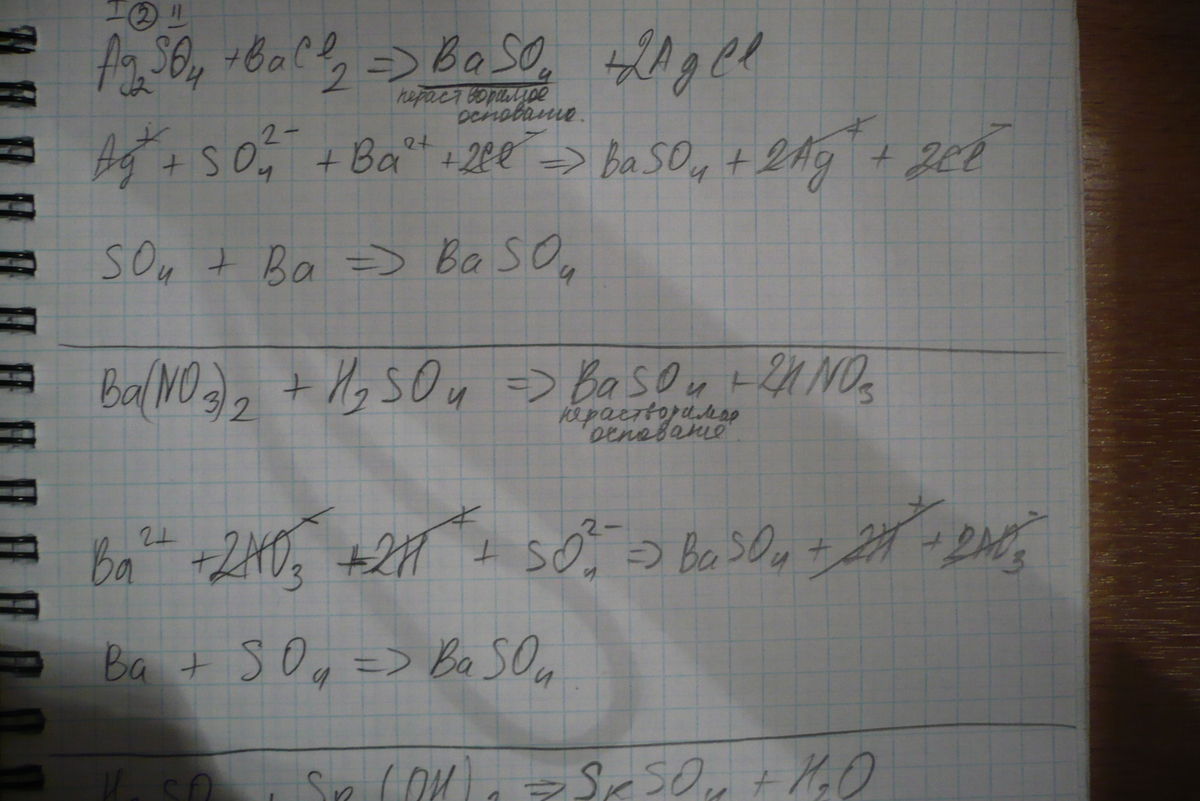 I ② II
Ag₂SO₄ + BaCl₂ => BaSO₄ + 2AgCl
нерастворимое
основание.
Ag⁺ + SO₄²⁻ + Ba²⁺ + 2Cl⁻ => BaSO₄ + 2Ag⁺ + 2Cl⁻
SO₄ + Ba => BaSO₄
Ba(NO₃)₂ + H₂SO₄ => BaSO₄ + 2HNO₃
нерастворимое
основание.
Ba²⁺ + 2NO₃⁻ + 2H⁺ + SO₄²⁻ => BaSO₄ + 2H⁺ + 2NO₃⁻
Ba + SO₄ => BaSO₄
H₂SO₄ + Sr(OH)₂ => SrSO₄ + H₂O